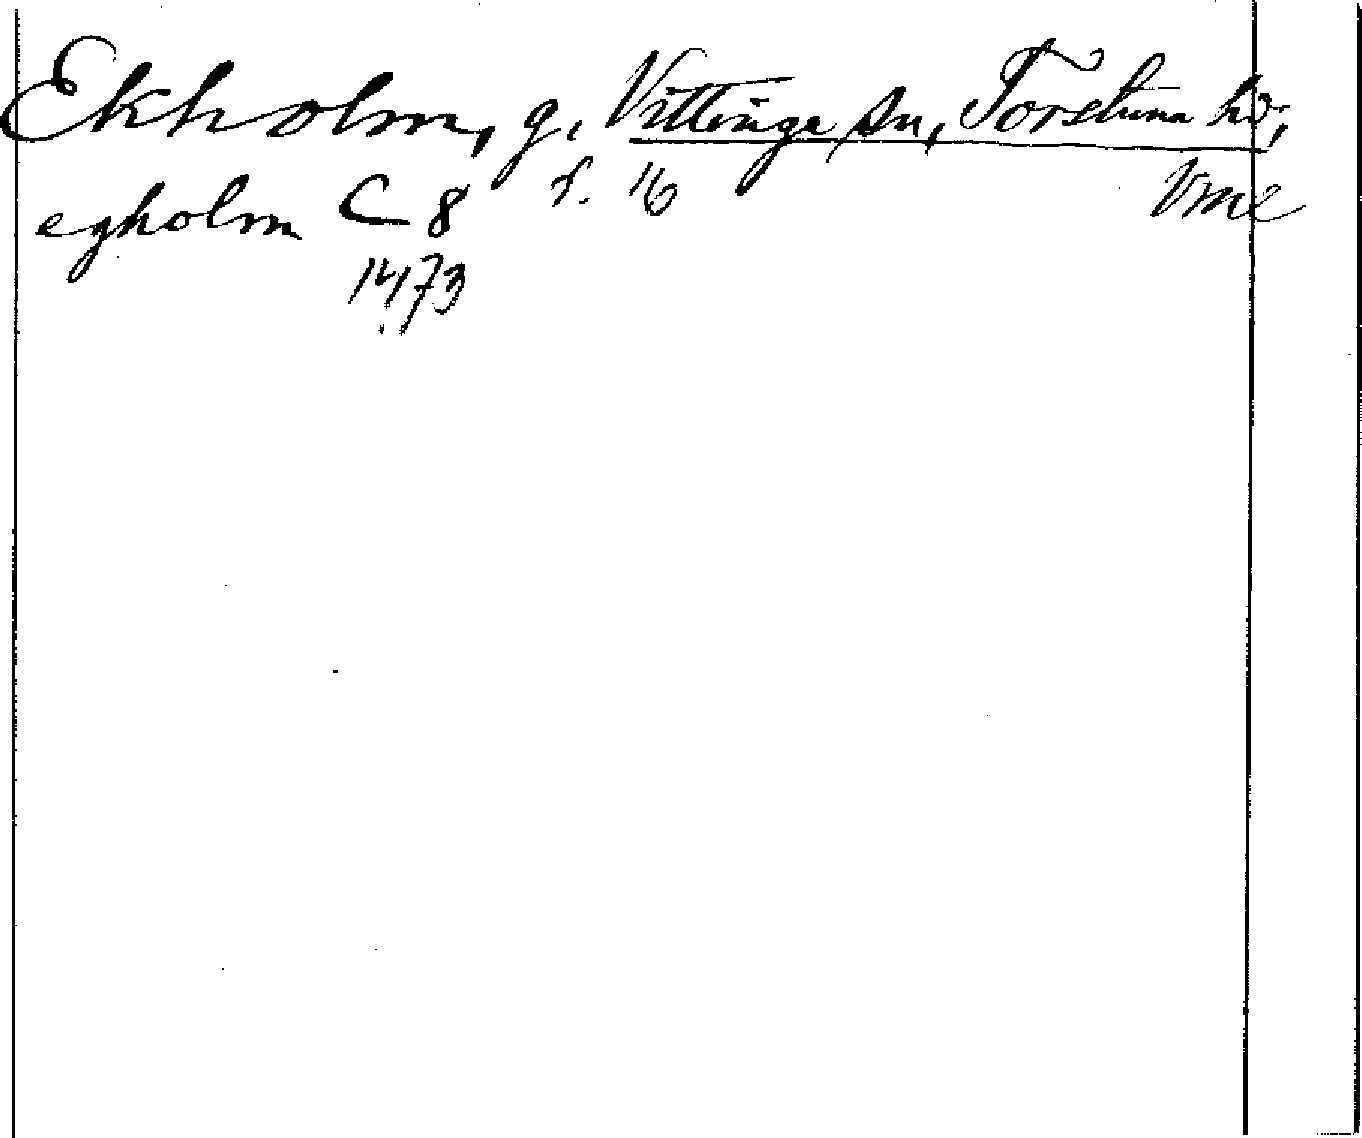 Ekholm, g, Vittinge sn, Torstuna hd;
egholm C 8 f. 16 Vml
1473